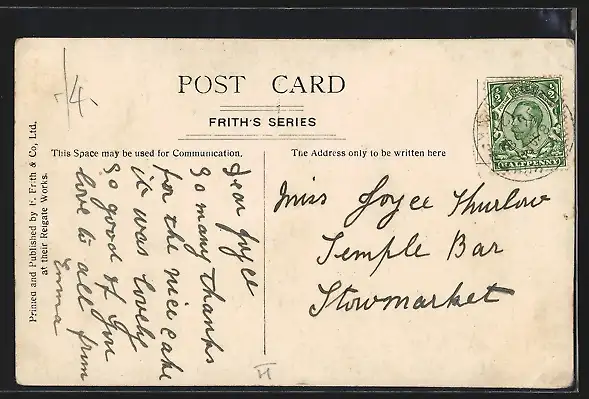 /4.
POST CARD
FRITH'S SERIES
This Space may be used for Communication.
The Address only to be written here
Printed and Published by F. Frith & Co, Ltd.
at their Reigate Works.
Dear Joyce
So many thanks
for the nice cake
it was lovely
so good of you
love to all from
Emma
Miss Joyce Thurlow
Temple Bar
Stowmarket
HALFPENNY